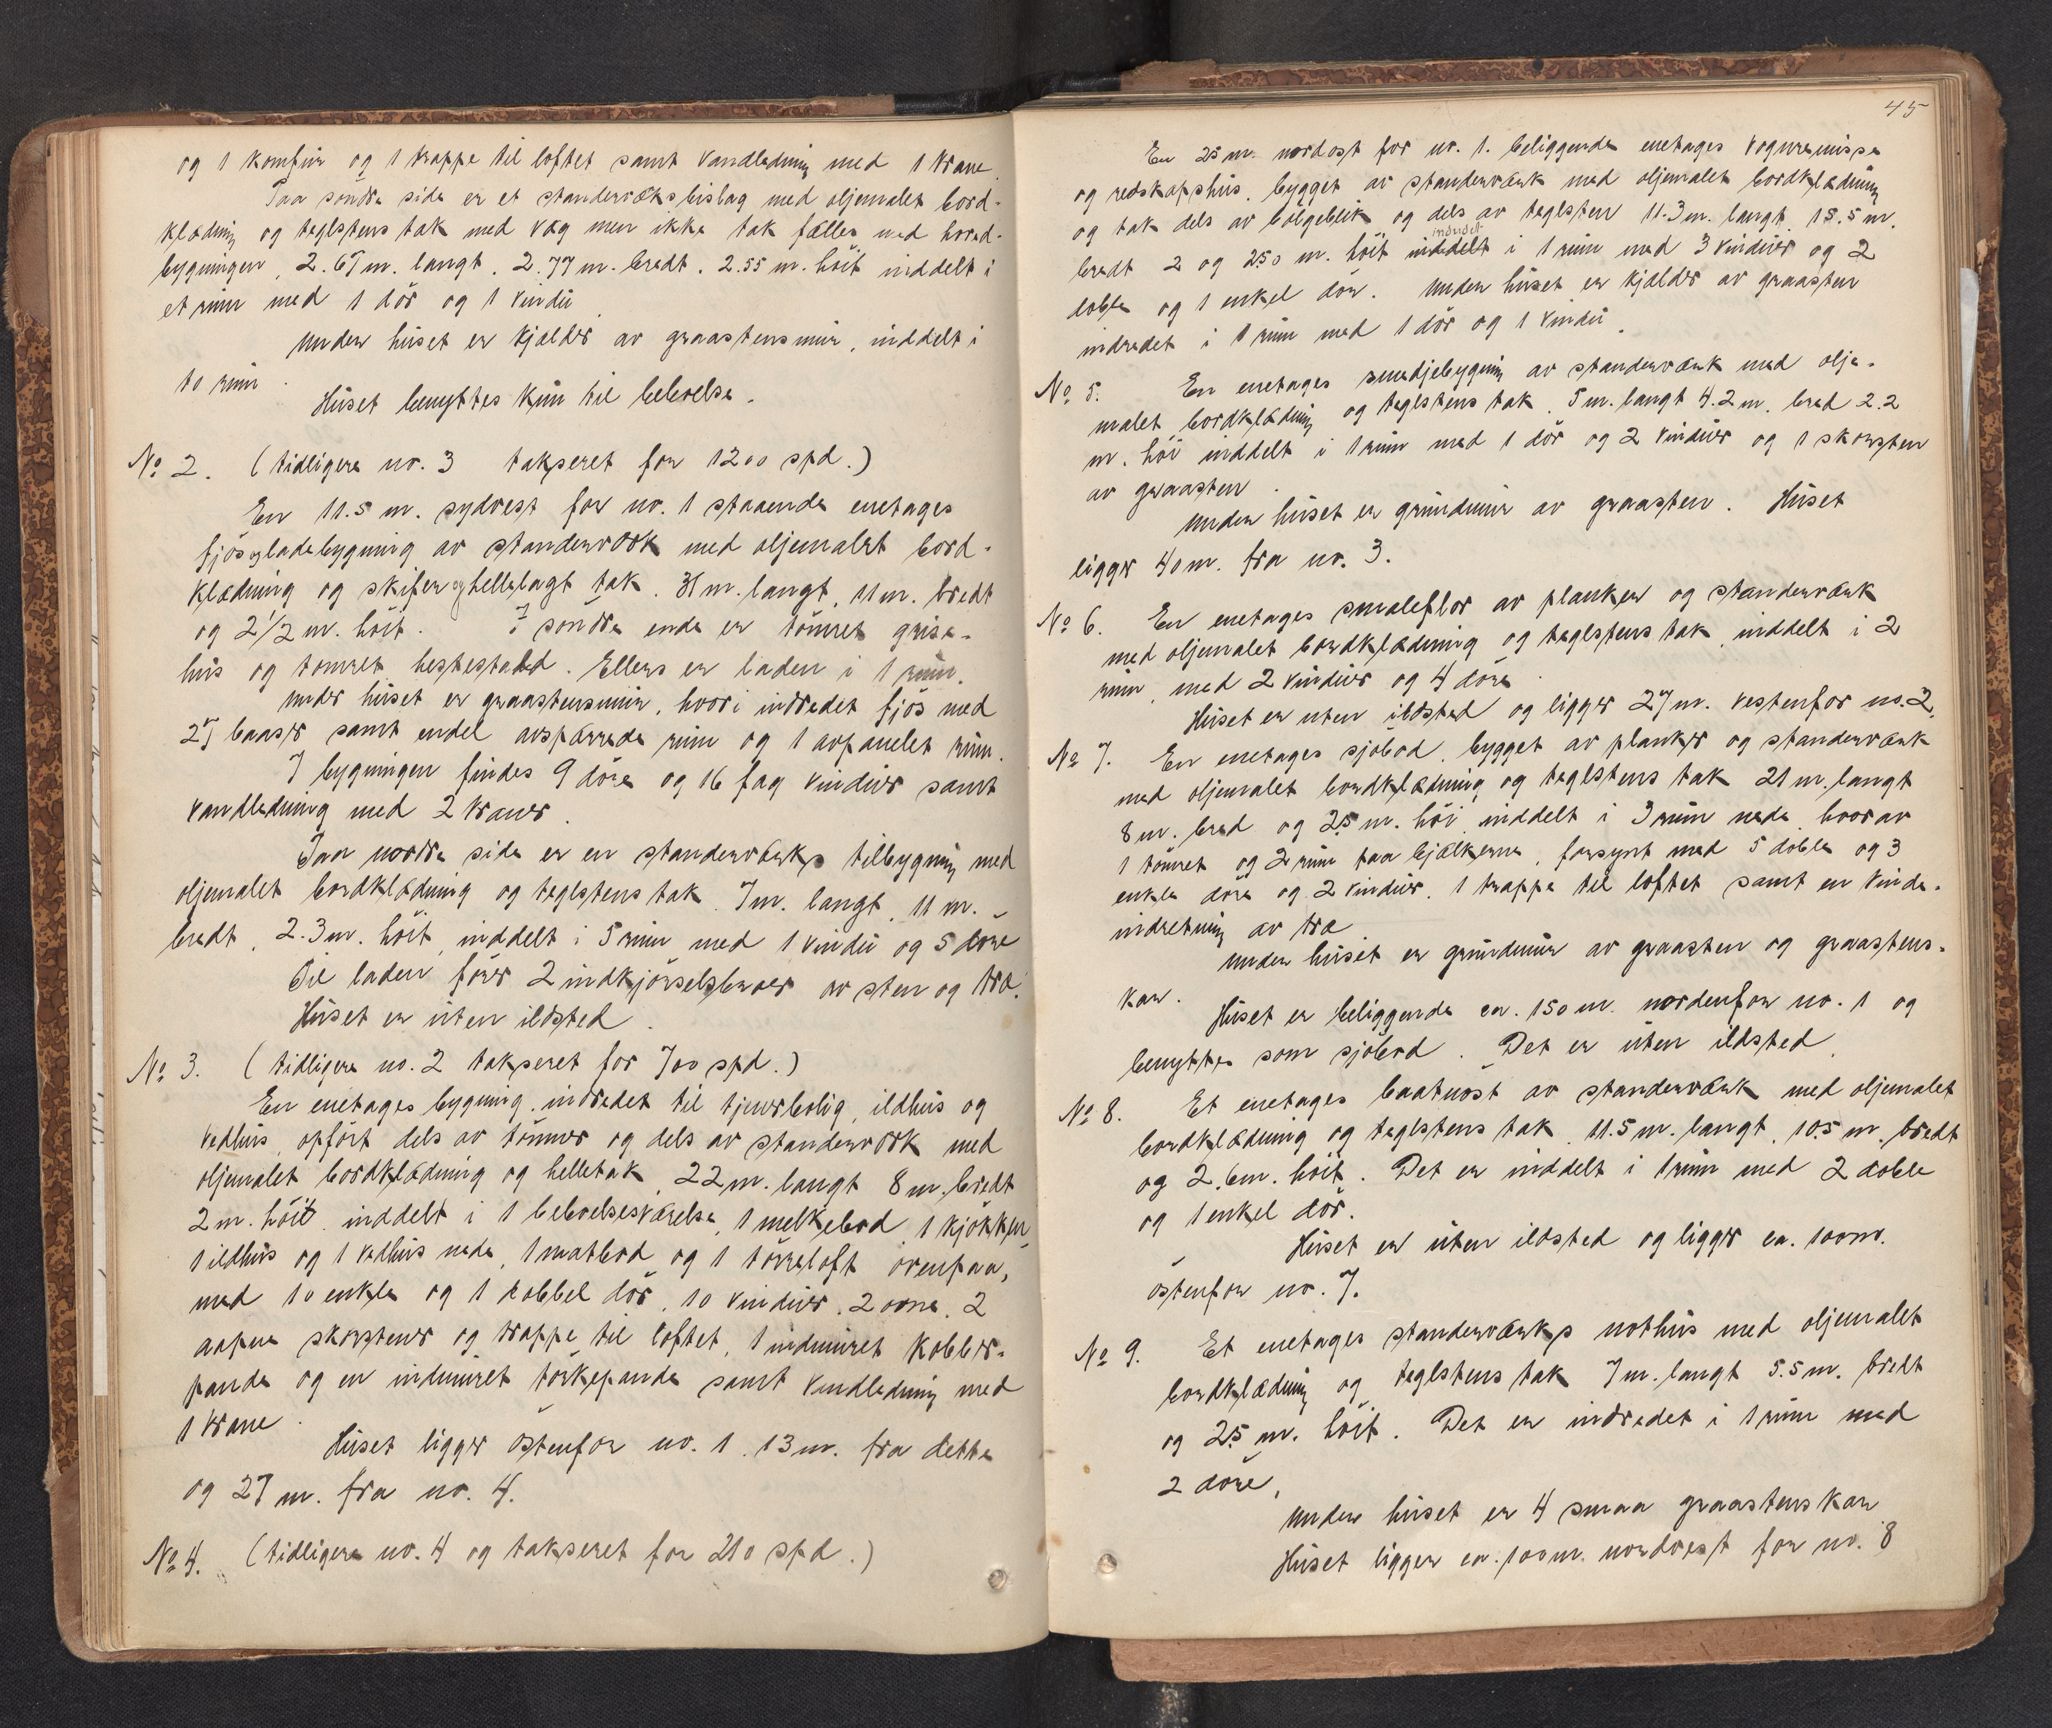 og 1 komfur og 1 trappe til loftet samt vandledning med 1 krane.
Paa söndre side er et standerværksbislag med oljemalet bord-
klædning og teglstens tak med væg men ikke tak fælles med hoved-
bygningen, 2.65 m. langt, 2.77 m. bredt, 2.55 m. höit inddelt i
et rum med 1 dör og 1 vindu
Under huset er kjælder av graastensmur, inddelt i
to rum.
Huset benyttes kun til beboelse.
No 2. (tidligere no. 3 takseret for 1200 spd.)
En 11.5 m. sydvest for no. 1 staaende enetages
fjös og ladebygning av standerværk med oljemalet bord-
klædning og skifer og hellelagt tak. 31 m. langt, 11 m. bredt
og 2 1/2 m. höit. I söndre ende er tömret grise-
hus og tömret hestestald. Ellers er laden i 1 rum.
Under huset er graastensmur, hvori indredet fjös med
25 baaser samt endel avspærrede rum og 1 avpanelet rum.
I bygningen findes 9 döre og 16 fag vinduer samt
vandledning med 2 kraner.
Paa nordre side er en standerværks tilbygning med
oljemalet bordklædning og teglstens tak 7 m. langt, 11 m.
bredt, 2.3 m. höit, inddelt i 5 rum med 1 vindu og 5 döre
Til laden förer 2 indkjörselsbroer av sten og træ.
Huset er uten ildsted.
No 3. (tidligere no. 2 takseret for 700 spd.)
En enetages bygning, indredet til tjenerbolig, ildhus og
vedhus, opfört dels av tömmer og dels av standerværk med
oljemalet bordklædning og helletak, 22 m. langt 8 m. bredt
2 m. höit, inddelt i 1 beboelsesværelse, 1 melkebod, 1 kjökken
1 ildhus og 1 vedhus nede, 1 matbod og 1 törreloft ovenpaa,
med 10 enkle og 1 dobbel dör, 10 vinduer, 2 ovne, 2
aapne skorstener og trappe til loftet, 1 indmuret kobber-
pande og en indmuret törkepande samt vandledning med
1 krane.
Huset ligger östenfor no. 1, 13 m. fra dette
og 27 m. fra no. 4.
No 4. (tidligere no. 4 og takseret for 210 spd.)
45
En 25 m. nordost for no. 1. beliggende enetages vognremisse
og redskapshus, bygget av standerværk med oljemalet bordklædning
og tak dels av bölgeblik og dels av teglsten 11.3 m. langt, 15.5 m.
indredet
bredt 2 og 2.50 m. höit inddelt i 1 rum med 3 vinduer og 2
doble og 1 enkel dör. Under huset er kjælder av graasten
indredet i 1 rum med 1 dör og 1 vindu.
No 5. En enetages smedjebygning av standerværk med olje-
malet bordklædning og teglstens tak, 5 m. langt 4.2 m. bred 2.2
m. höi inddelt i 1 rum med 1 dör og 2 vinduer og 1 skorsten
av graasten.
Under huset er grundmur av graasten. Huset
ligger 40 m. fra no. 3.
No 6. En enetages smaleflor av planker og standerværk
med oljemalet bordklædning og teglstens tak, inddelt i 2
rum, med 2 vinduer og 4 döre.
Huset er uten ildsted og ligger 27 m. vestenfor no. 2.
No 7. En enetages sjöbod, bygget av planker og standerværk
med oljemalet bordklædning og teglstens tak 21 m. langt
8 m. bred og 2.5 m. höi, inddelt i 3 rum nede, hvorav
1 tömret og 2 rum paa bjælkerne, forsynt med 5 doble og 3
enkle döre og 2 vinduer, 1 trappe til loftet samt en vinde-
indretning av træ
Under huset er grundmur av graasten og graastens-
kar.
Huset er beliggende ca. 150 m. nordenfor no. 1 og
benyttes som sjöbod. Det er uten ildsted.
No 8. Et enetages baatnöst av standerværk med oljemalet
bordklædning og teglstens tak, 11.5 m. langt, 10.5 m. bredt
og 2.6 m. höit. Det er inddelt i 1 rum med 2 doble
og 1 enkel dör.
Huset er uten ildsted og ligger ca. 100 m.
östenfor no. 7.
No 9. Et enetages standerværks nothus med oljemalet
bordklædning og teglstens tak 7 m. langt 5.5 m. bredt
og 2.5 m. höit. Det er indredet i 1 rum med
2 döre,
Under huset er 4 smaa graastenskar
Huset ligger ca. 100 m. nordvest for no. 8